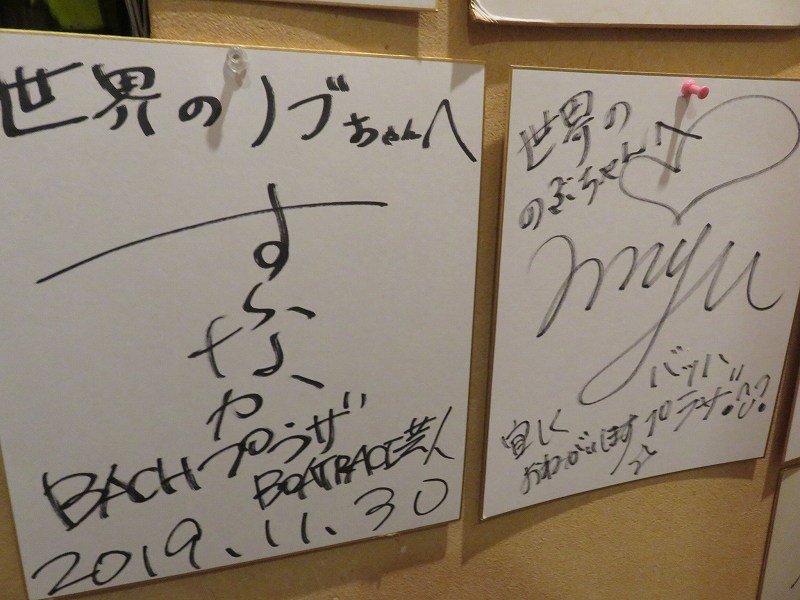 世界のノブちゃんへ
すなか
BACHプロラザ
BOATRACE芸人
2019.11.30
世界の
のぶちゃんへ
myu
バッハ
プロラザ
宜しく
おねがいします